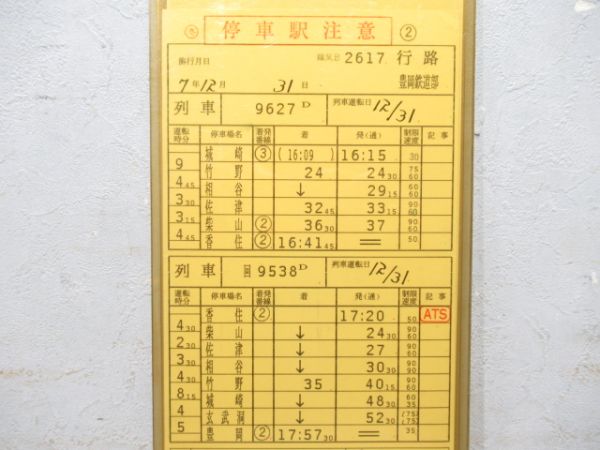 停車駅注意 ②
施行月日 2617 行路
7年12月 31日
列車 9627D 列車運転日 12/31
運転時分 停車場名 着発番線 着 発(通) 制限速度 記事
城崎 ③ (16:09) 16:15 30
9 竹野 24 24 30 75 60
4 45 相谷 ↓ 29 15 60 60
3 30 佐津 32 45 33 15 90 60
3 15 柴山 ② 36 30 37 90 60
4 45 香住 ② 16:41 45 = 50
列車 回9538D 列車運転日 12/31
運転時分 停車場名 着発番線 着 発(通) 制限速度 記事
香住 ② 17:20 50 ATS
4 30 柴山 ↓ 24 30 90 60
2 30 佐津 ↓ 27 90 60
3 30 相谷 ↓ 30 30 90 90
4 30 竹野 35 40 15 90 60
8 15 城崎 ↓ 48 30 60 35
4 玄武洞 ↓ 52 30 (75) (75)
5 豊岡 ② 17:57 30 = 35